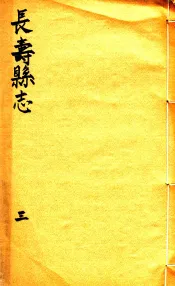 長壽縣志
三